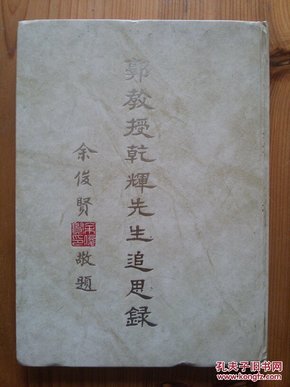 郭教授乾輝先生追思錄
余俊賢敬題
孔夫子旧书网